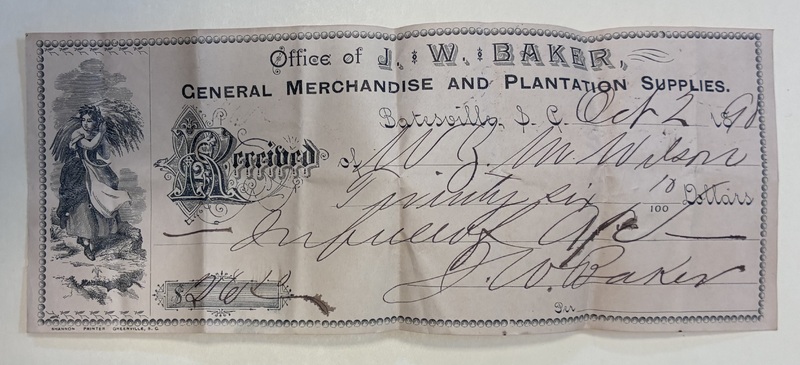 Office of J. W. BAKER,
GENERAL MERCHANDISE AND PLANTATION SUPPLIES.
Batesville, S. C. Oct 2 1890
Received of W. M. Wilson
Twenty six 10/100 Dollars
In full of a/c
$26.10 J. W. Baker
Per
SHANNON PRINTER GREENVILLE, S. C.